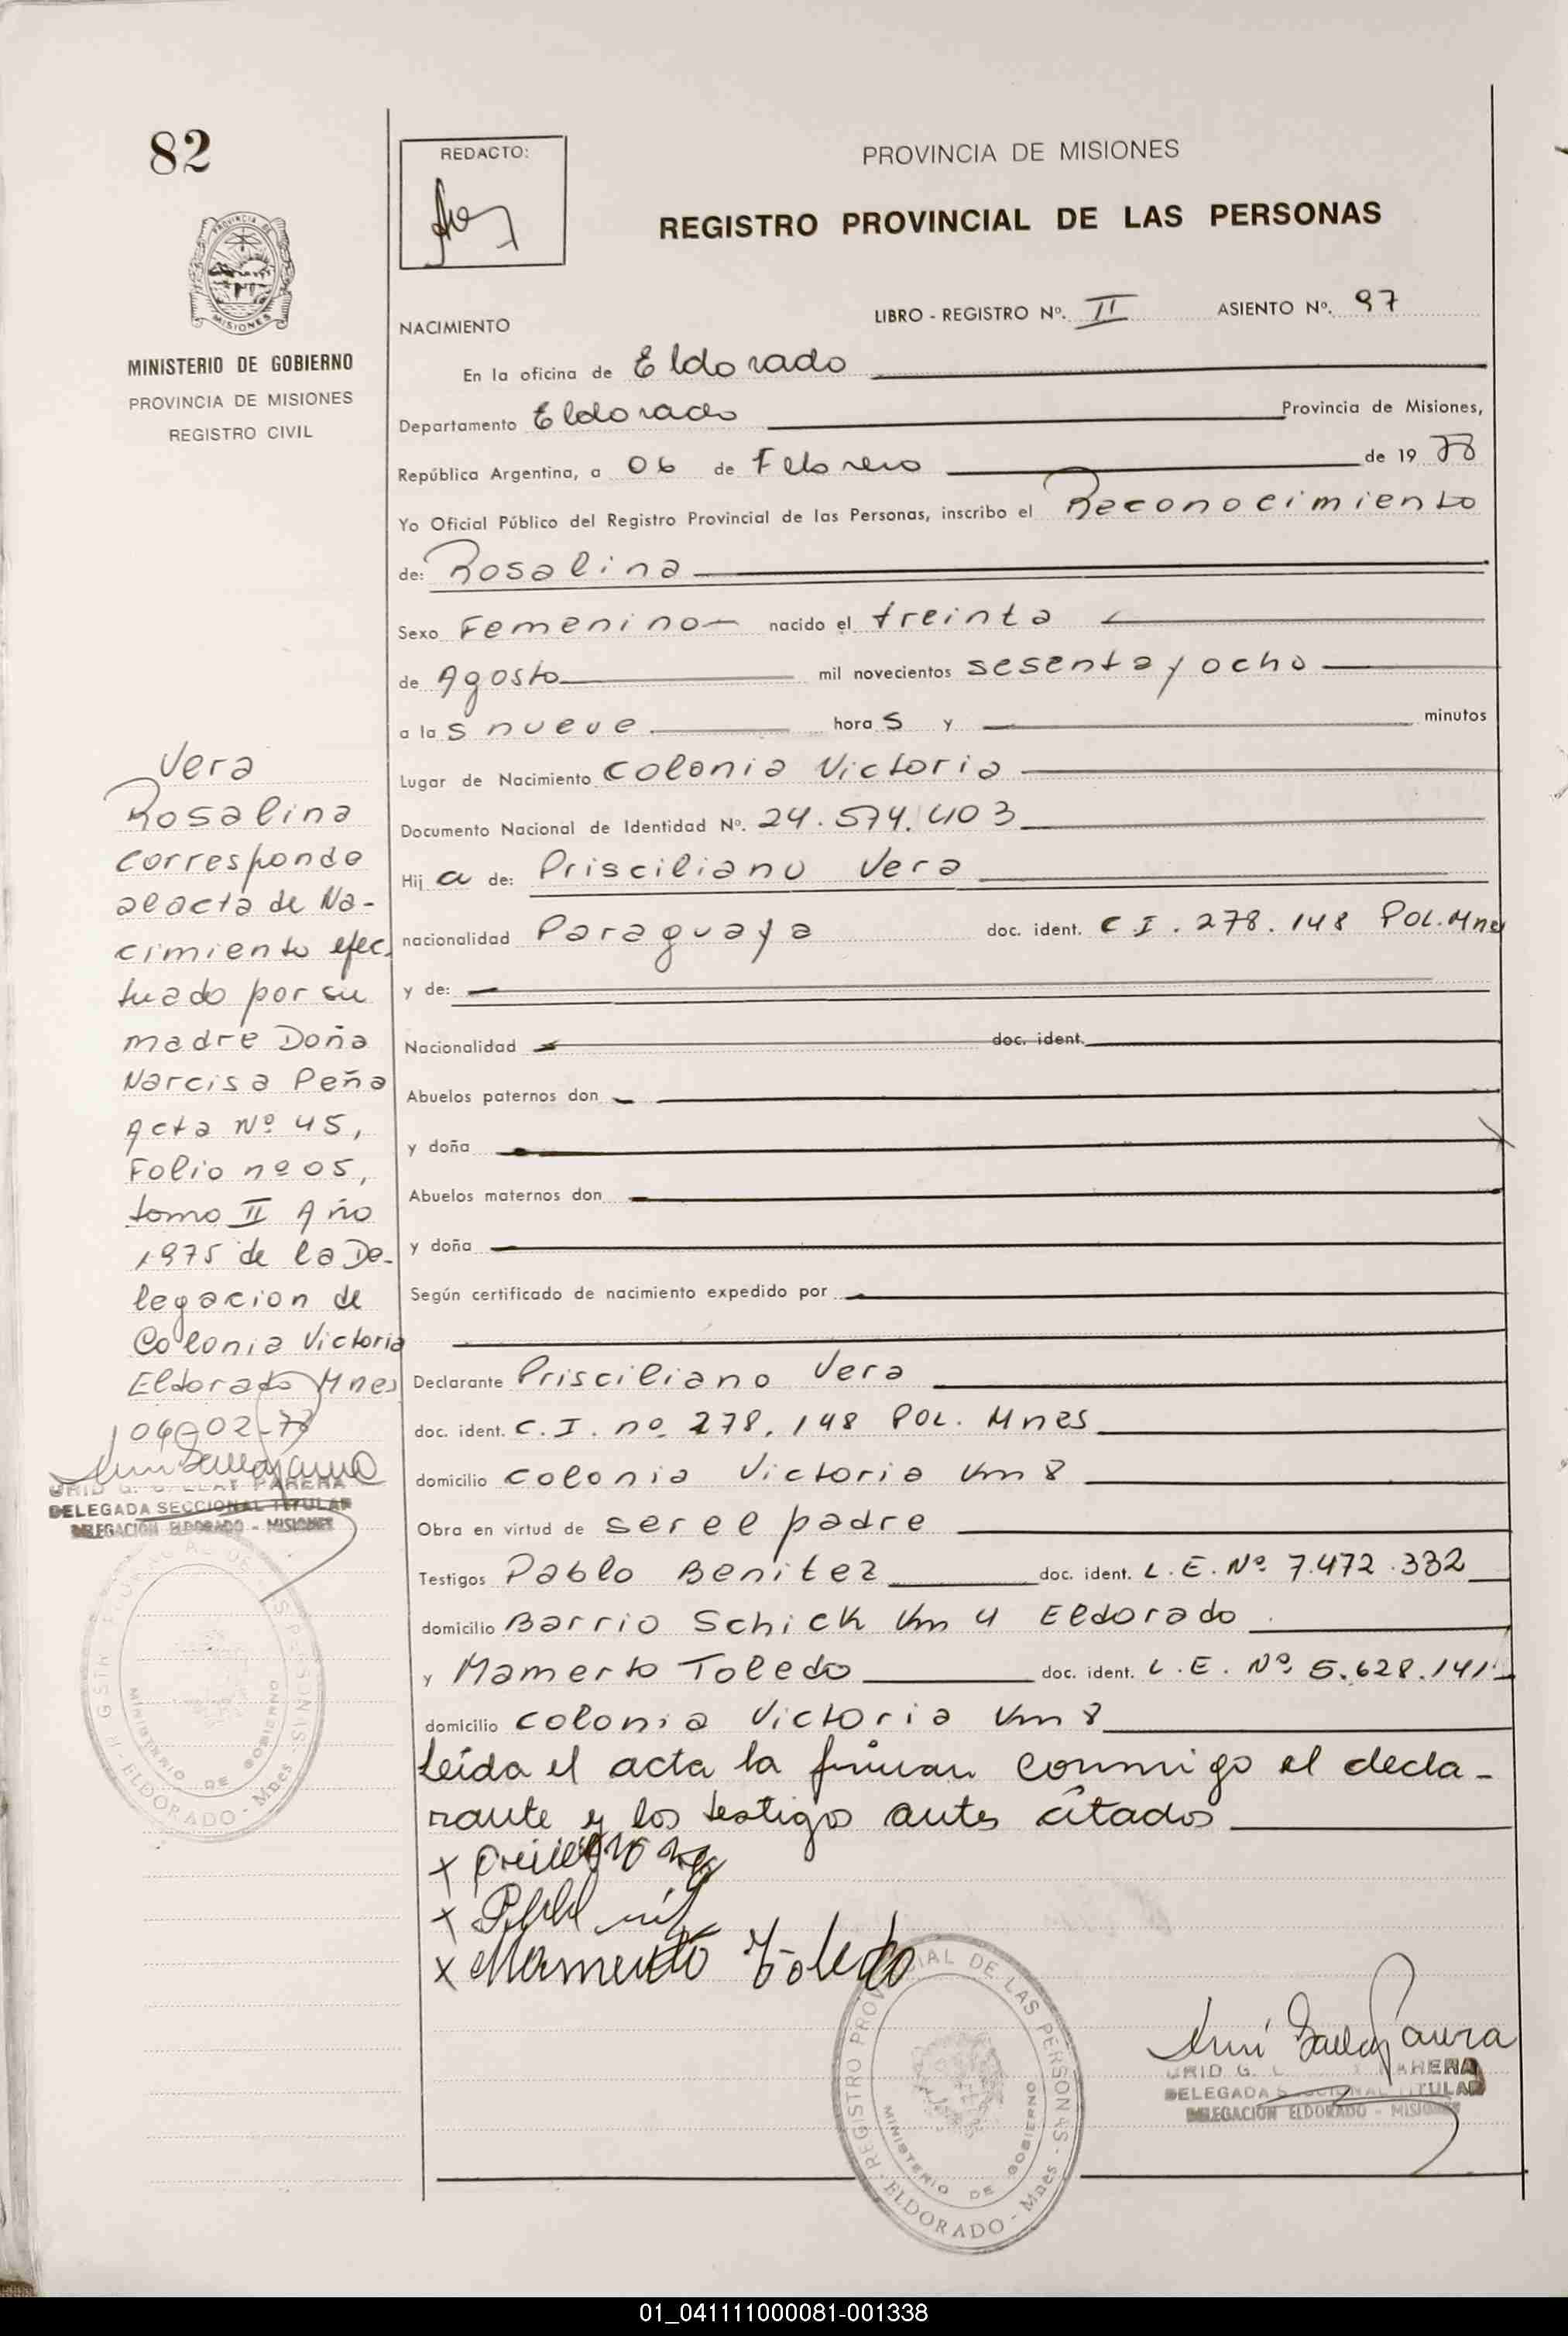 82
PROVINCIA DE
MISIONES
MINISTERIO DE GOBIERNO
PROVINCIA DE MISIONES
REGISTRO CIVIL
REDACTO:
PROVINCIA DE MISIONES
REGISTRO PROVINCIAL DE LAS PERSONAS
LIBRO - REGISTRO Nº. II ASIENTO Nº. 97
NACIMIENTO
En la oficina de Eldorado
Departamento Eldorado Provincia de Misiones,
República Argentina, a 06 de Febrero de 19 78
Yo Oficial Público del Registro Provincial de las Personas, inscribo el Reconocimiento
de: Rosalina
Sexo Femenino nacido el treinta
de Agosto mil novecientos sesenta y ocho
a las nueve horas y minutos
Lugar de Nacimiento Colonia Victoria
Documento Nacional de Identidad Nº. 24.574.403
Hija de: Prisciliano Vera
nacionalidad Paraguaya doc. ident. C I. 278.148 POL.Mnes
y de:
Nacionalidad doc. ident.
Abuelos paternos don
y doña
Abuelos maternos don
y doña
Según certificado de nacimiento expedido por
Declarante Prisciliano Vera
doc. ident. C. I. nº 278.148 POL. Mnes
domicilio Colonia Victoria Km 8
Obra en virtud de ser el padre
Testigos Pablo Benitez doc. ident. L.E. Nº 7.472.332
domicilio Barrio Schick Km 4 Eldorado
y Mamerto Toledo doc. ident. L.E. Nº 5.628.141
domicilio Colonia Victoria Km 8
Leída el acta la firman conmigo el decla-
rante y los testigo antes citados
x
x
x Mamerto Toledo
REGISTRO PROVINCIAL DE LAS PERSONAS - ELDORADO - Mnes
MINISTERIO DE GOBIERNO
PARERA
DELEGADA SECCIONAL TITULAR
DELEGACION ELDORADO - MISIONES
Vera
Rosalina
Corresponde
al acta de Na-
cimiento efec.
tuado por su
madre Doña
Narcisa Peña
Acta Nº 45,
Folio nº 05,
tomo II Año
1975 de la De-
legacion de
Colonia Victoria
Eldorado Mnes
06-02-78
PARERA
DELEGADA SECCIONAL TITULAR
DELEGACION ELDORADO - MISIONES
MINISTERIO DE GOBIERNO
ELDORADO - Mnes
01_041111000081-001338